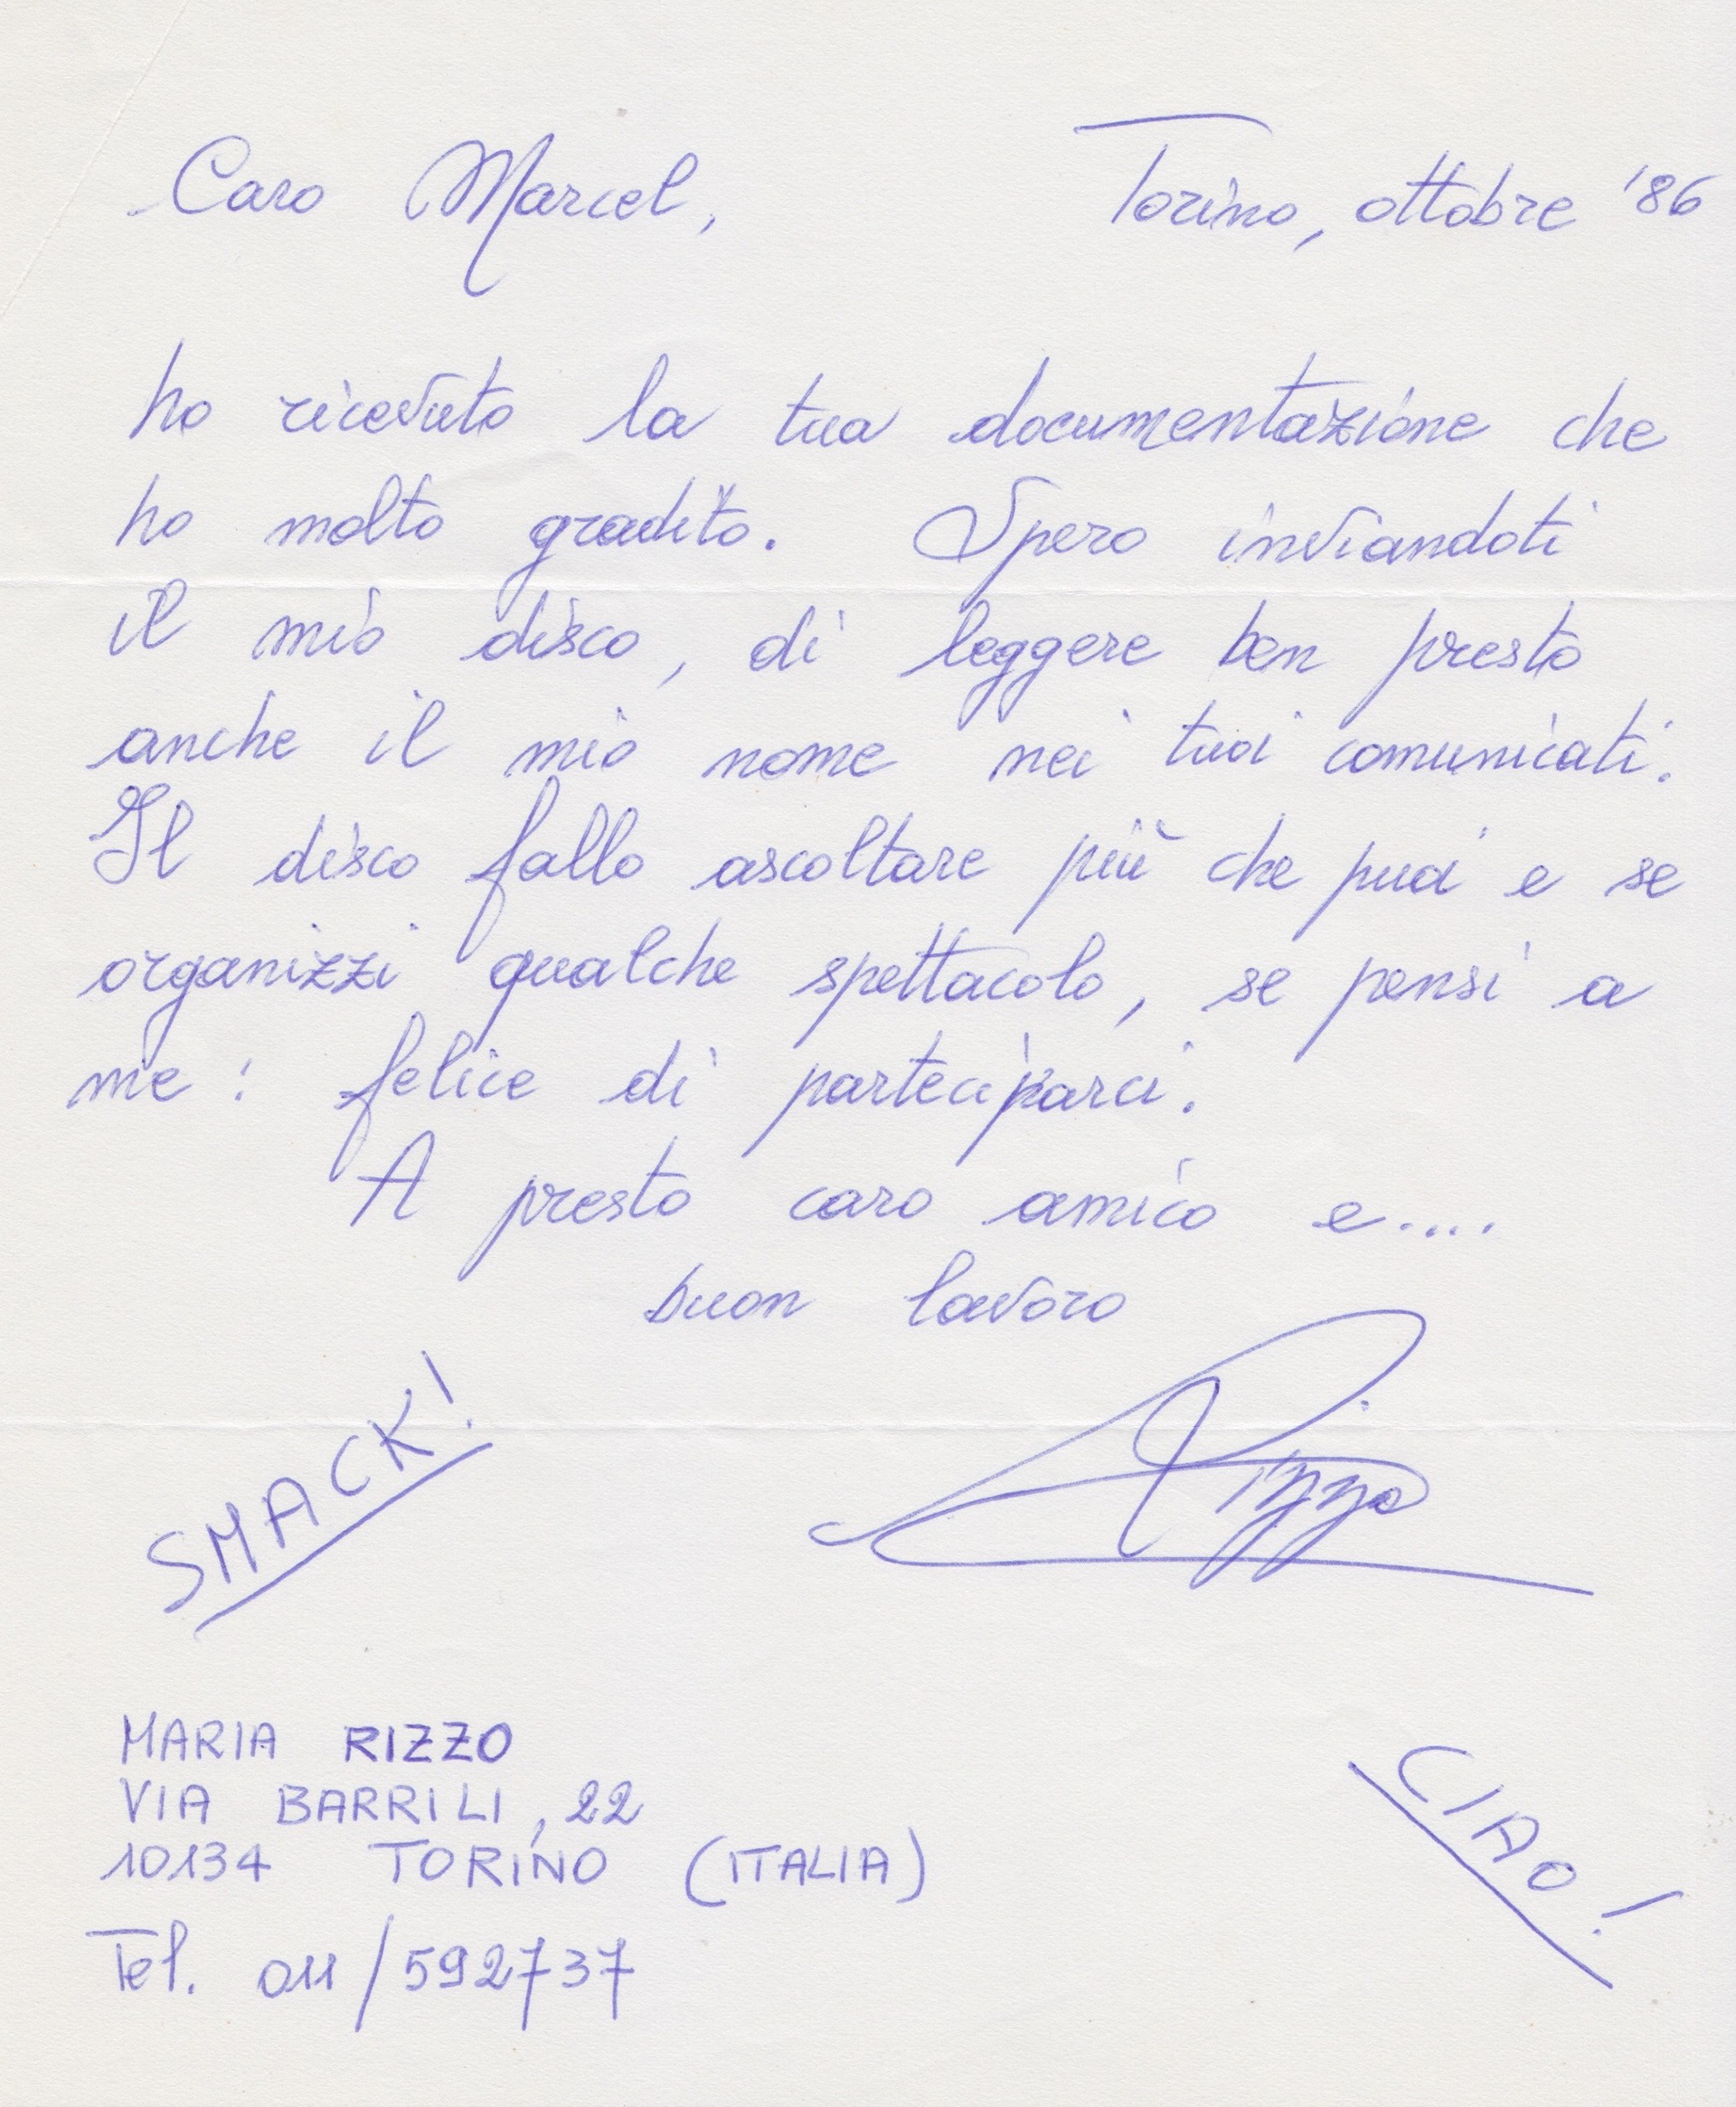 Caro Marcel, Torino, ottobre '86
ho ricevuto la tua documentazione che
ho molto gradito. Spero inviandoti
il mio disco, di leggere ben presto
anche il mio nome nei tuoi comunicati.
Il disco fallo ascoltare più che puoi e se
organizzi qualche spettacolo, se pensi a
me: felice di parteciparci.
A presto caro amico e....
buon lavoro
Rizzo
SMACK!
MARIA RIZZO
VIA BARRILI, 22
10134 TORINO (ITALIA)
Tel. 011/592737
CIAO!